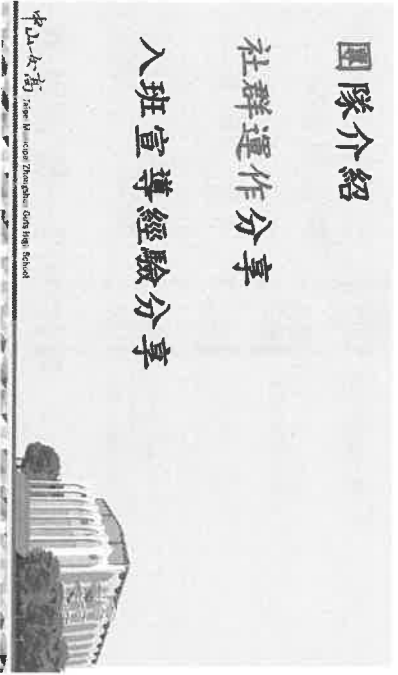 團隊介紹
社群運作分享
入班宣導經驗分享
中山女高 Taipei Municipal Zhongshan Girls High School